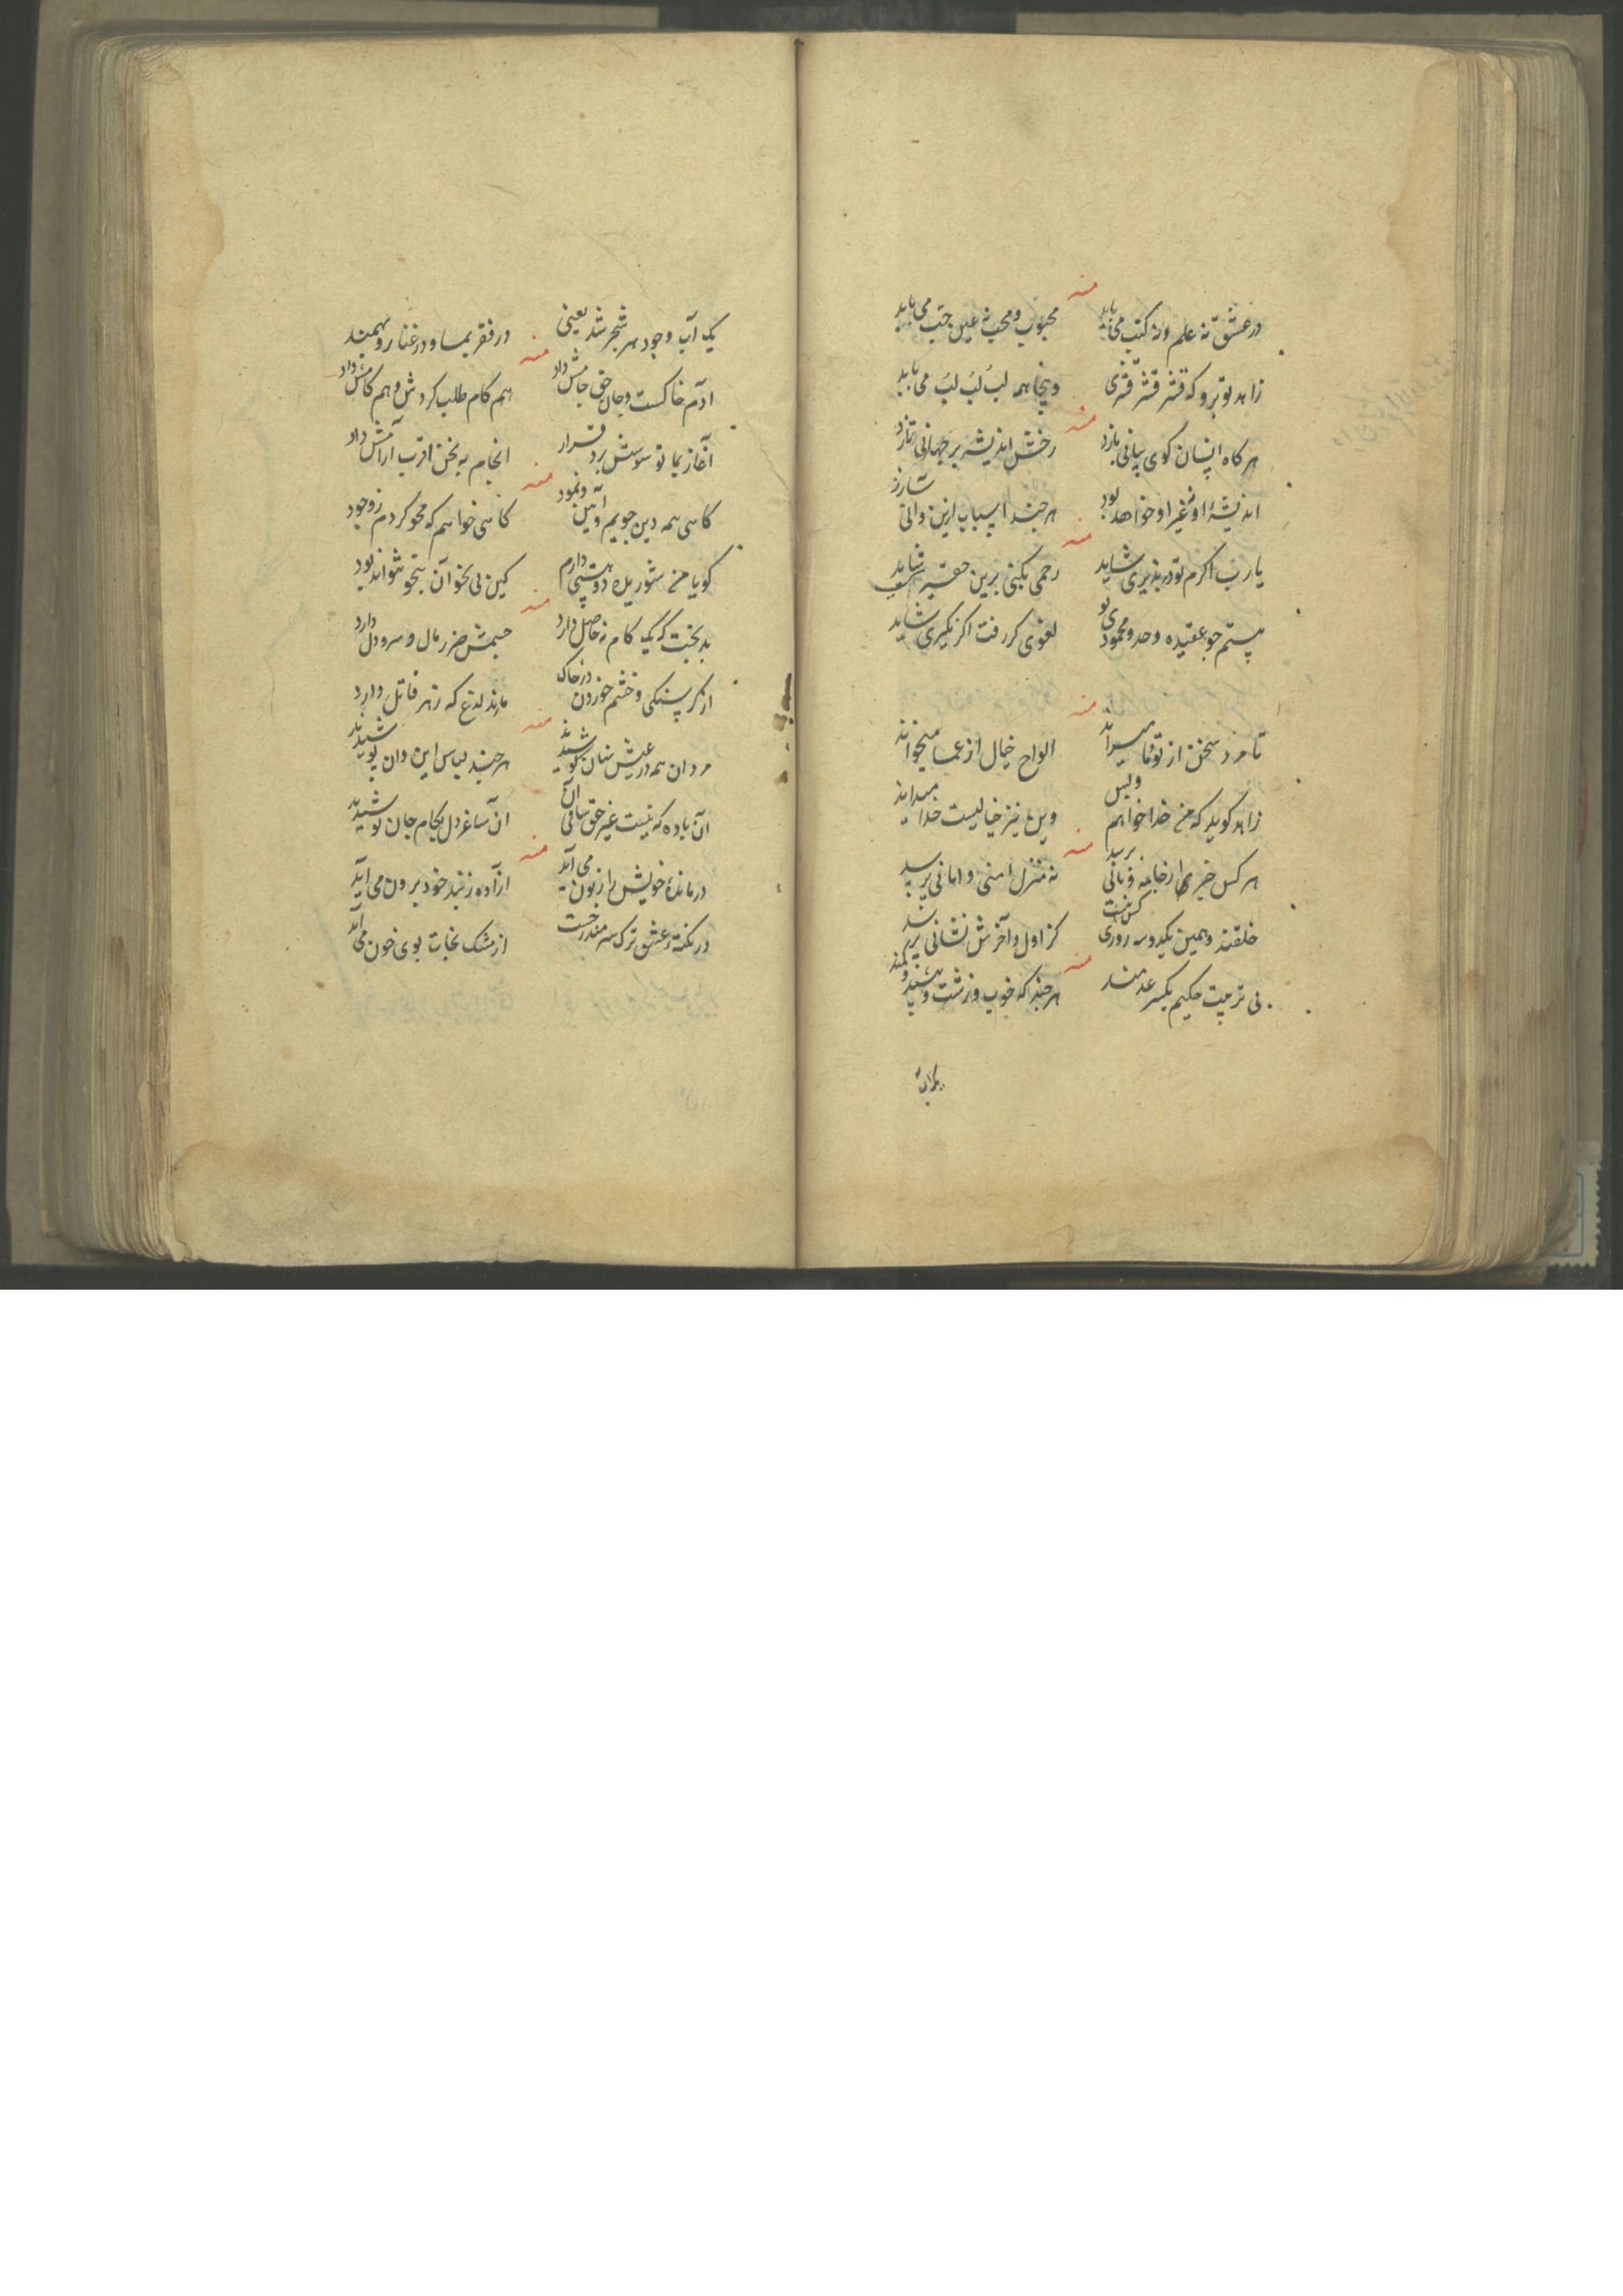 منه
در عشق نه علم و نه کتب می باید محبوب و محب نه عین حب می باید
زاهد تو برو که قشر قشر قشری وینجا همه لب لب لب می باید
منه
هر کاه انسان کوی بیانی بازد رخش اندیشه بر جهانی تازد
اندیشهٔ او غیر او خواهد بود هر چند اسباب ازین وانی سازد
منه
یا رب اکرم تو در پذیری شاید رحمی بکنی برین حقیر شاید
هستم جو عقیده وحد و محمود لغوی کر رفت اکر نکیری شاید
منه
تا مرد سخن از تو و ما میراند الواح خیال از عما میخواند
زاهد کوید که من خدا خواهم وبس وین نیز خیالیست خدا میداند
منه
هر کس خبری ز خامه فانی برسد نه منزل امنی و امانی برسد
خلقند و همین یکدوسه روزی کس نیست کز اول و آخرش نشانی برسد
منه
بی تربیت حکیم یکسر عدمند هر چند که خوب و زشت و بیش و کمند
یک آب
یک آب وجود هر شجر شد یعنی در فقر بما و در غنا رو بهمند
منه
آدم خاکست و جان حق جامش داد هم کام طلب کردش و هم کامش داد
آغاز بما توسوسش برد قرار انجام به نحن اقرب آرامش داد
منه
کاهی همه دین جویم و آیین و نمود کاهی خواهم که محو کردم ز وجود
کویا من شوریده دو هستی دارم کین بی نحو آن نتواند بود
منه
بدبخت که یک کام نه حاصل دارد جیمش ضرر مال و سر و دل دارد
از کرسنکی و خشم خوردن در خاک ماند لدغ که زهر قاتل دارد
منه
مردان همه در عیش نهان کوشیدند هر چند لباس این و آن پوشیدند
آن باده که نیست غیر حق ساقی آن از ساغر دل بکام جان نوشیدند
منه
درماندهٔ خویش را زبون می آید آزاده ز بند خود برون می آید
در نکتهٔ عشق ترک سر مندرجست از مشک نجات بوی خون می آید